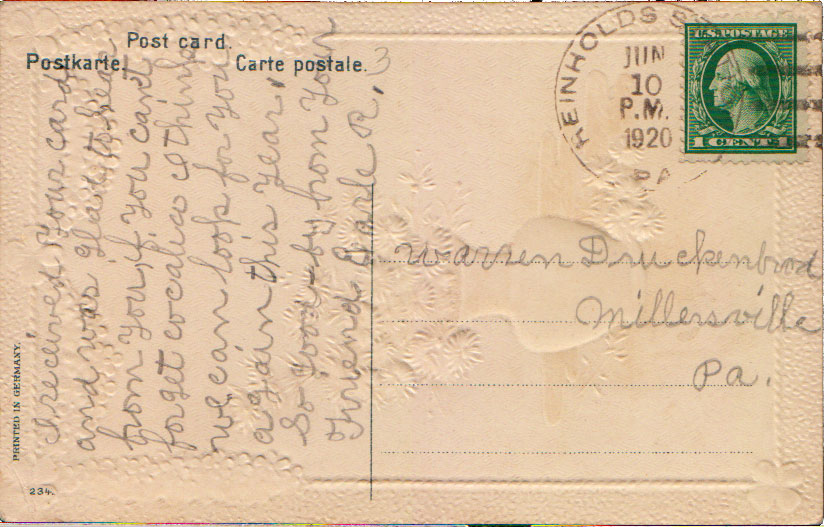 Post card.
Postkarte. Carte postale.
REINHOLDS
JUN
10
P.M.
1920
PA
U.S. POSTAGE
1 CENT 1
I received your card
and was glad to hear
from you, if you cant
forget cocalico I think
we can look for you
a gain this year,
So good-by from your
Friend Earle R.
Warren Druckenbrod
Millersville
Pa.
PRINTED IN GERMANY.
234.